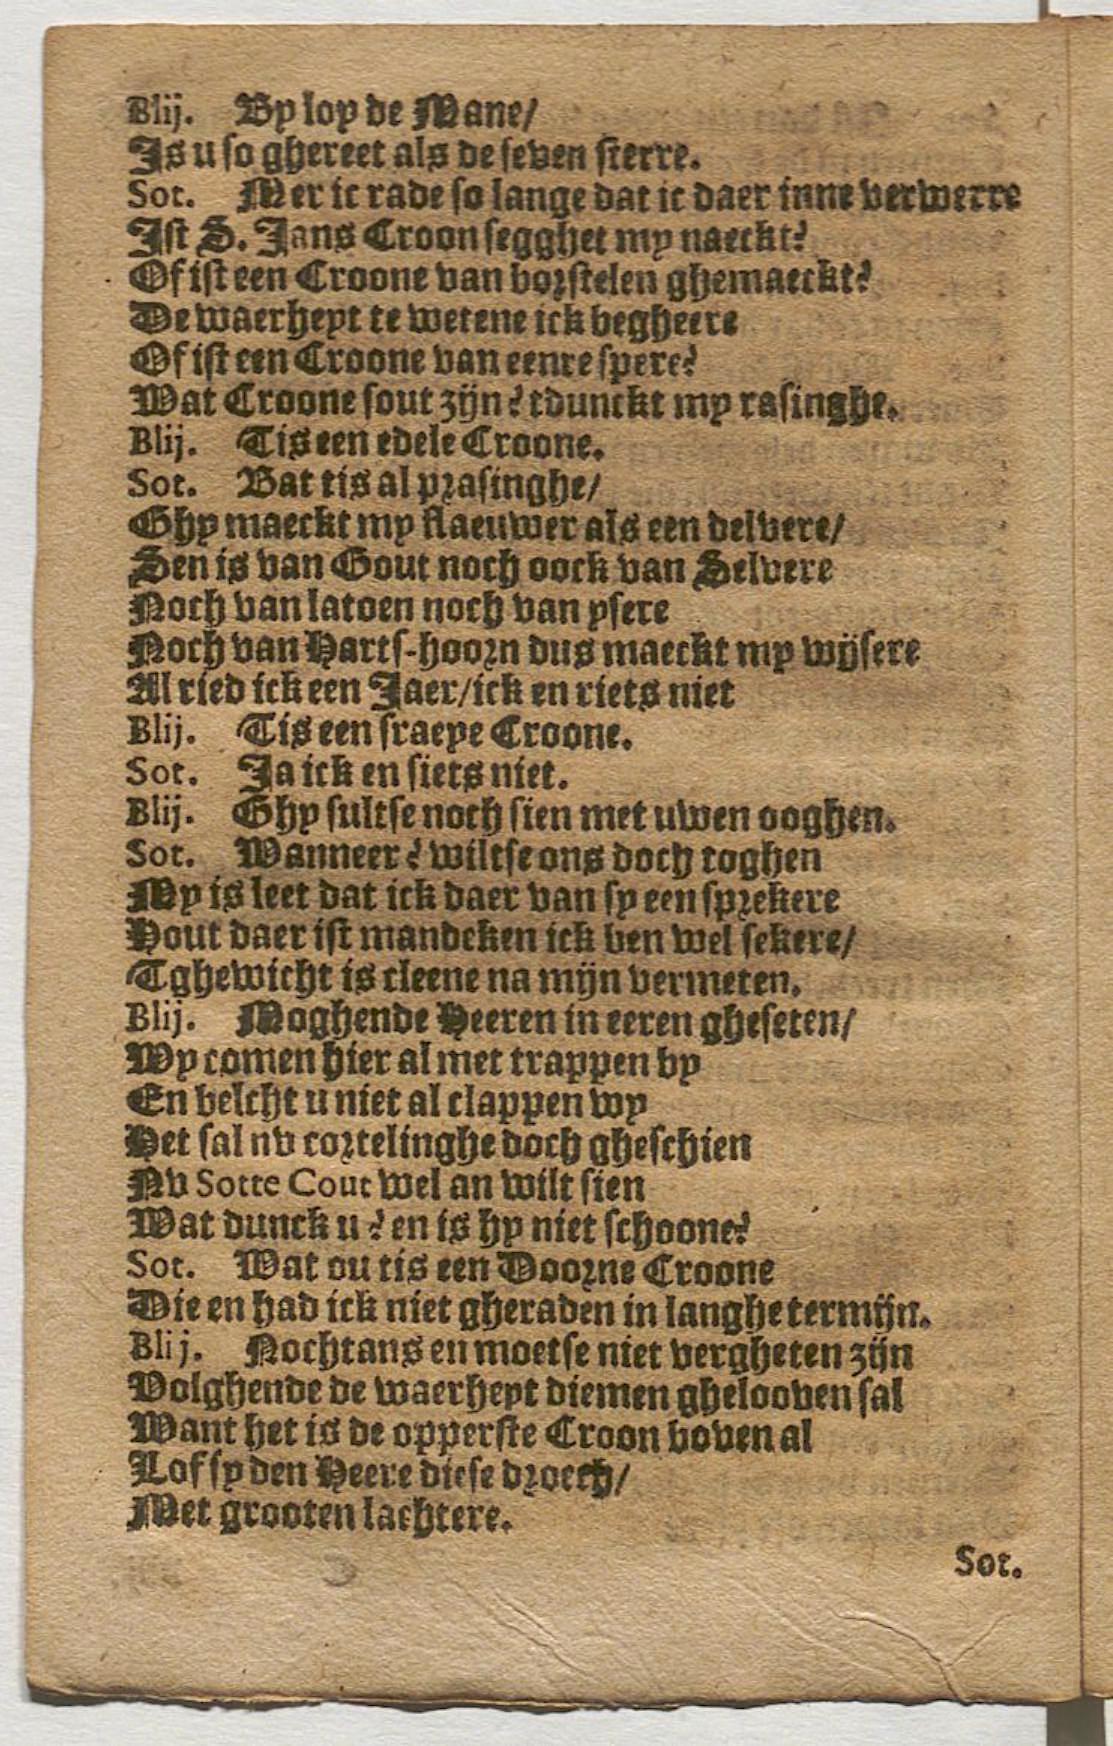 Blij. By loy de Mane/
Is u so ghereet als de seven sterre.
Sot. Mer ic rade so lange dat ic daer inne verwerre
Ist S. Jans Croon segghet my naeckt?
Of ist een Croone van borstelen ghemaeckt?
De waerheyt te wetene ick begheere
Of ist een Croone van eenre spere?
Wat Croone sout zijn? tdunckt my rasinghe.
Blij. Tis een edele Croone.
Sot. Bat tis al prasinghe/
Ghy maeckt my flaeuwer als een delvere/
Sen is van Gout noch oock van Selvere
Noch van latoen noch van ysere
Noch van Harts-hoorn dus maeckt my wijsere
Al ried ick een Jaer/ick en riets niet
Blij. Tis een fraeye Croone.
Sot. Ja ick en siets niet.
Blij. Ghy sultse noch sien met uwen ooghen.
Sot. Wanneer? wiltse ons doch toghen
My is leet dat ick daer van sy een sprekere
Hout daer ist mandeken ick ben wel sekere/
Tghewicht is cleene na mijn vermeten.
Blij. Moghende Heeren in eeren gheseten/
Wy comen hier al met trappen by
En belcht u niet al clappen wy
Het sal nv cortelinghe doch gheschien
Nv Sotte Cout wel an wilt sien
Wat dunck u? en is hy niet schoone?
Sot. Wat ou tis een Doorne Croone
Die en had ick niet gheraden in langhe termijn.
Blij. Nochtans en moetse niet vergheten zijn
Volghende de waerheyt diemen ghelooven sal
Want het is de opperste Croon boven al
Lof sy den Heere diese droech/
Met grooten lachtere.
Sot.